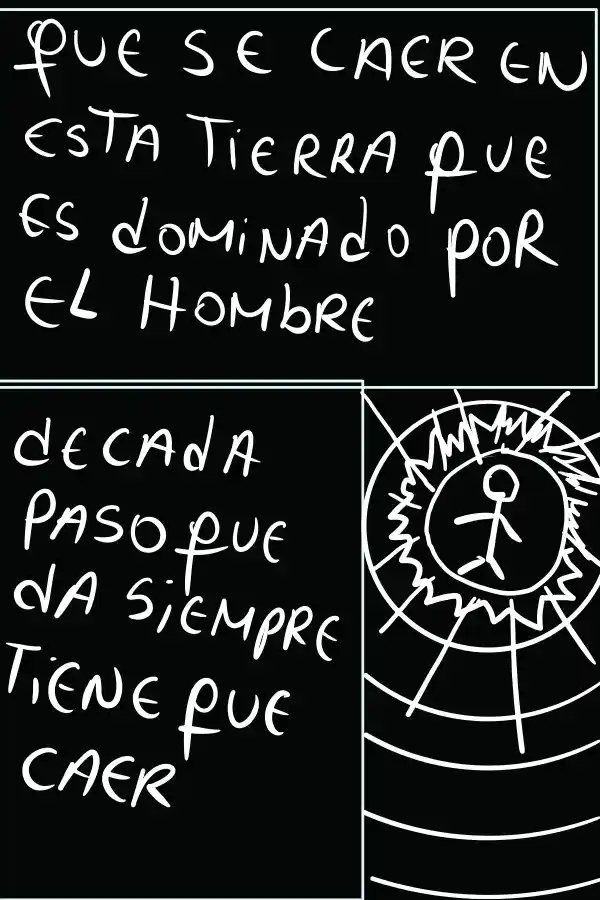 QUE SE CAER EN
ESTA TiERRA QUE
ES dOMiNAdO POR
EL HOMbRE
dECAdA
PASO QUE
dA SiEMPRE
TiENE QUE
CAER